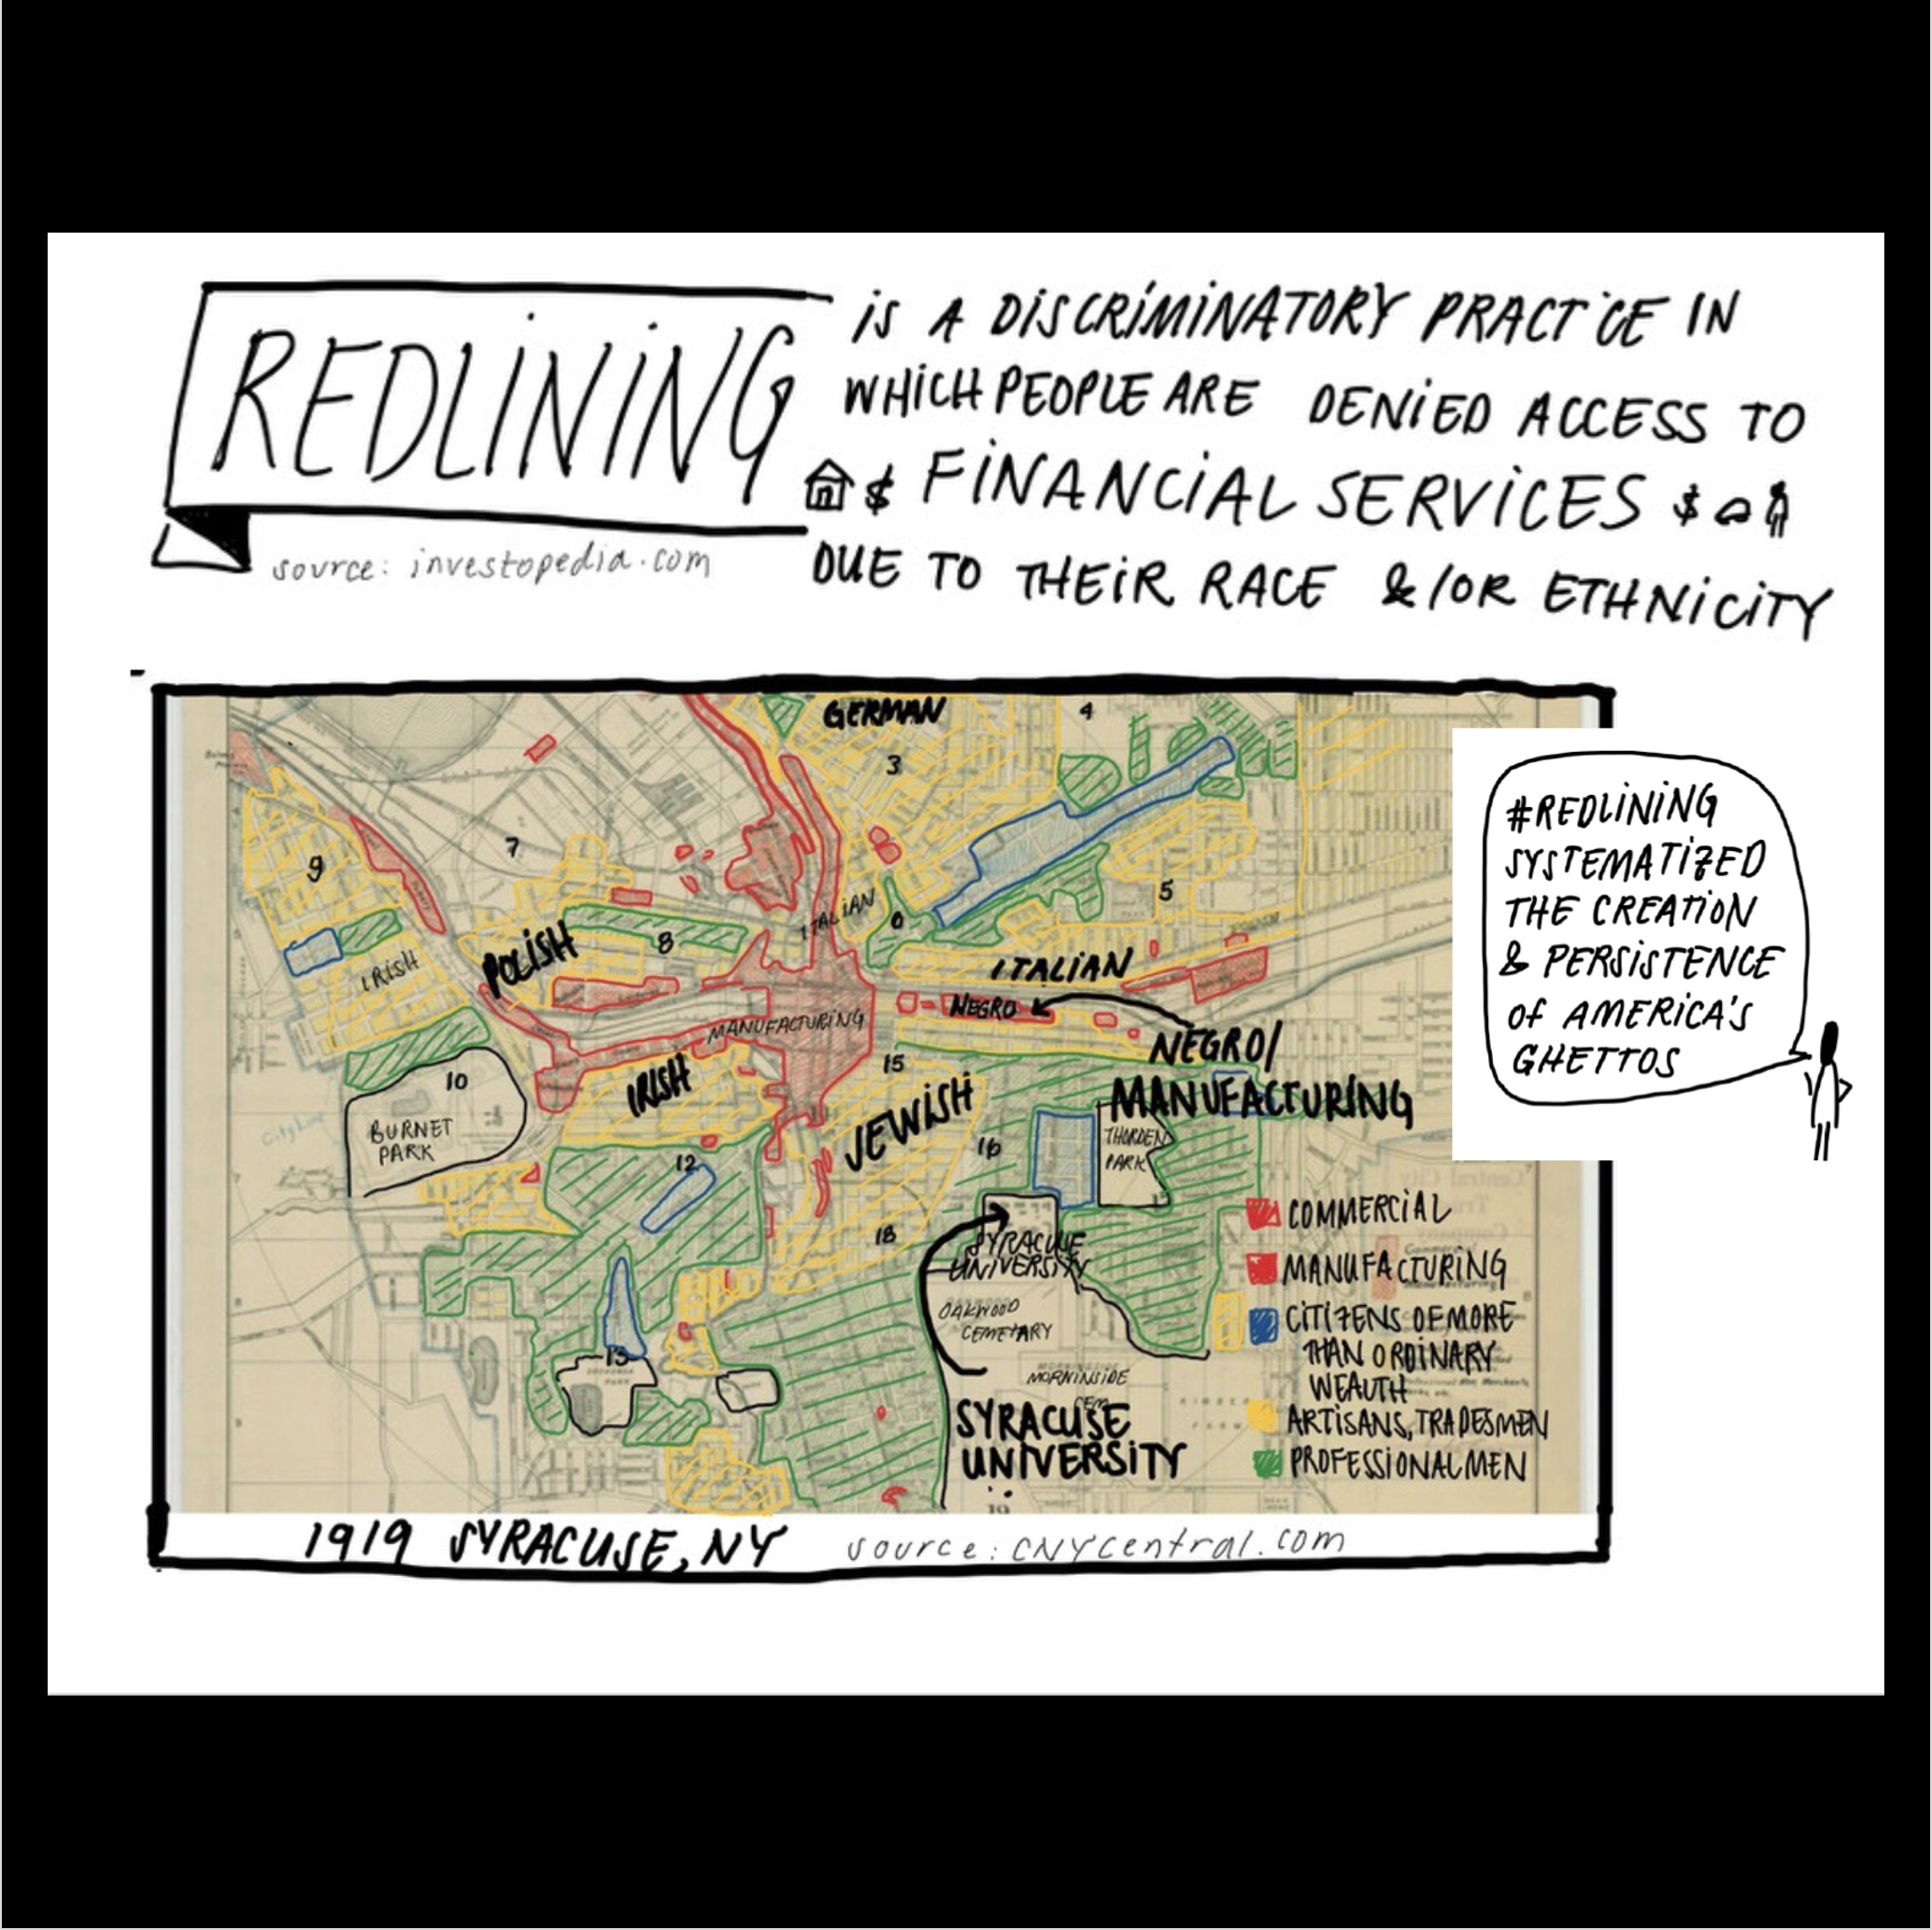 REDLINING
IS A DISCRIMINATORY PRACTICE IN
WHICH PEOPLE ARE DENIED ACCESS TO
$ FINANCIAL SERVICES $
DUE TO THEIR RACE &/OR ETHNICITY
source: investopedia.com
GERMAN
4
3
7
9
5
ITALIAN
6
8
POLISH
IRISH
ITALIAN
NEGRO
MANUFACTURING
NEGRO/
MANUFACTURING
15
IRISH
JEWISH
10
BURNET
PARK
City Line
THORDEN
PARK
16
12
17
18
SYRACUSE
UNIVERSITY
OAKWOOD
CEMETARY
MORNINSIDE
CEM
13
SYRACUSE
UNIVERSITY
19
COMMERCIAL
MANUFACTURING
CITIZENS OF MORE
THAN ORDINARY
WEALTH
ARTISANS, TRADESMEN
PROFESSIONAL MEN
#REDLINING
SYSTEMATIZED
THE CREATION
& PERSISTENCE
OF AMERICA'S
GHETTOS
1919 SYRACUSE, NY
source: CNYCentral.com